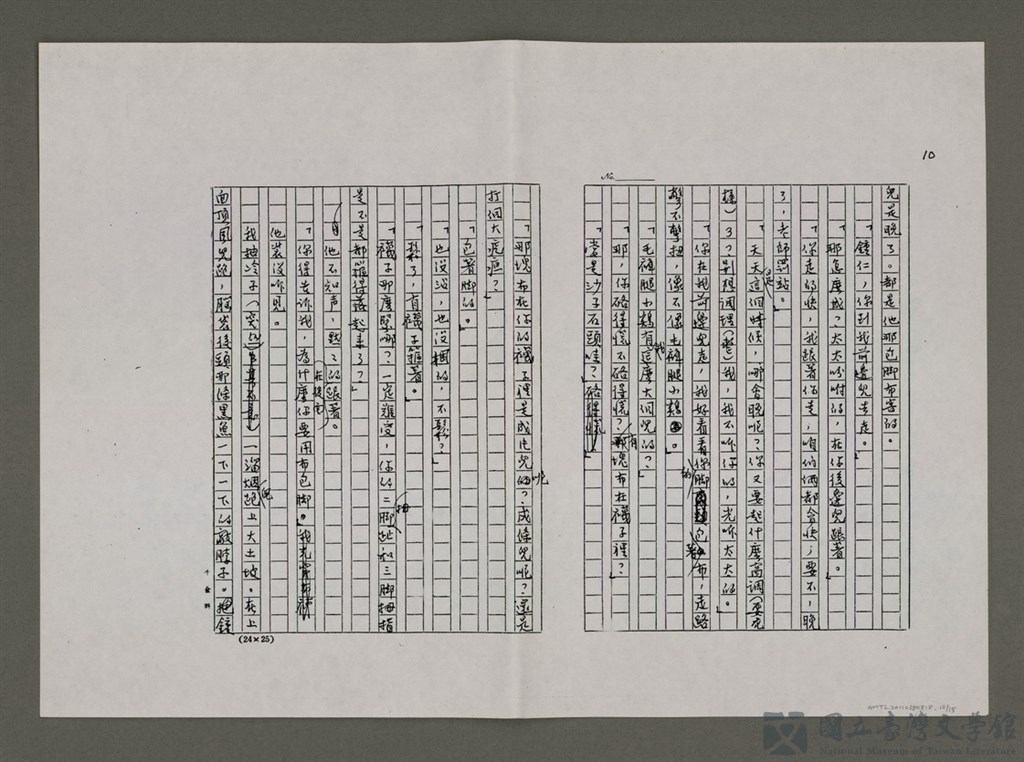 10
No.
兒是晚了。都是他那包脚布害的。
「鐘仁，你到我前邊兒去走。」
「那怎麼成？太太吩咐的，在你後邊兒跟著。」
「你走的快，我跟著你走，咱們倆都會快；要不，晚
了，老師罰站。」
「天天是這個時候，哪會晚呢？你又要起什麼高調（耍花
樣）了？別想調理（整）我，我不听你的，光听太太的。」
「你在我前邊兒走，我好看看你脚包布，走路
彆不彆扭，像不像毛褲腿小鷄。」
「毛褲腿小鷄有我這麼大個兒的？」
「那，你硌得慌不硌得慌？有塊布在襪子裡？」
「當是沙子石頭哇？硌得慌」
「那塊布在你的襪子裡是成片兒的呢？成條兒呢？還是
打個大疙瘩？」
「包著脚的。」
「也沒沁，也沒捆的，不鬆？」
「鬆了，有襪子箍著。」
「襪子那麼緊哪？一定難受，你的二脚趾和三脚拇指
是不是都摧得落起來了？」
他不知声，默默的跟著。
「你得告訴我，為什麼你要用布包脚。」
他裝沒听見。
我抽冷子（突然）一溜烟兒跑上大土坡。在上
面頂風兒跑，腦袋後頭那條黑魚一下一下的敲脖子。把鐘
(24×25)
國立臺灣文學館
National Museum of Taiwan Literature